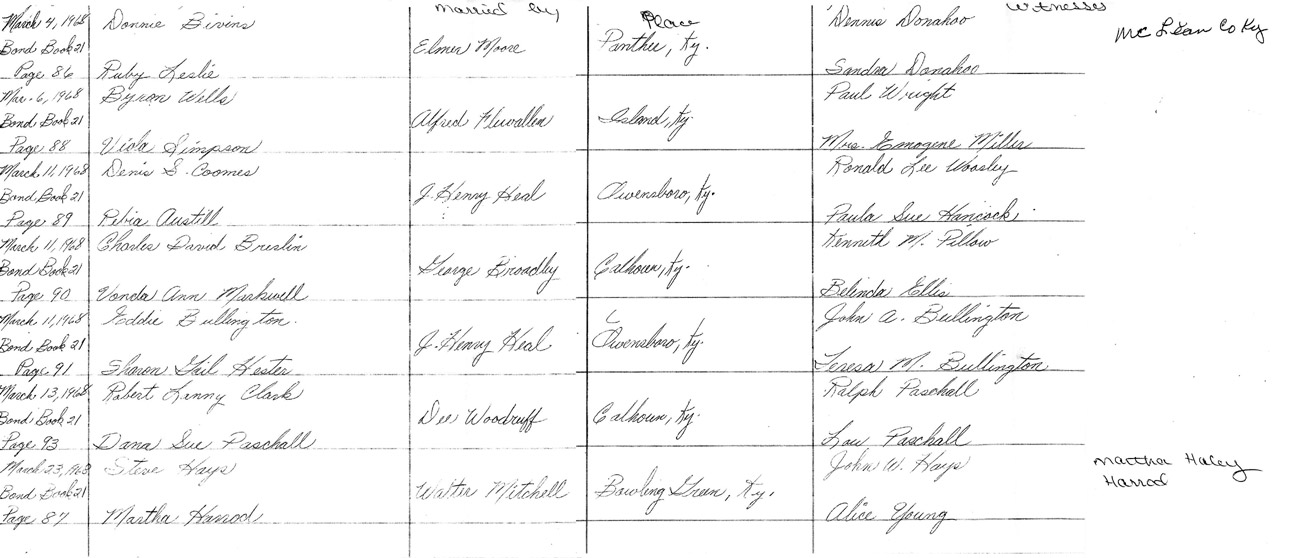 married by Place witnesses
March 4, 1968 Donnie Bivins Dennis Donahoo Mc Lean Co Ky
Bond Book 21 Elmer Moore Panther, Ky.
Page 86 Ruby Leslie Sandra Donahoo
Mar. 6, 1968 Byron Wells Paul Wright
Bond Book 21 Alfred Island, Ky.
Page 88 Viola Simpson Mrs. Emogene Miller
March 11, 1968 Denis S. Coomes Ronald Lee Woosley
Bond Book 21 J. Henry Heal Owensboro, Ky.
Page 89 Austill Paula Sue Hancock
March 11, 1968 Charles David Breslin Kenneth M. Pillow
Bond Book 21 George Broadley Calhoun, Ky.
Page 90 Vonda Ann Markwell Belinda Ellis
March 11, 1968 Eddie Bullington. John A. Bullington
Bond Book 21 J. Henry Heal Owensboro, Ky.
Page 91 Sharon Gail Hester Teresa M. Bullington
March 13, 1968 Robert Lenny Clark Ralph Paschall
Bond Book 21 Dee Woodruff Calhoun, Ky.
Page 93 Dana Sue Paschall Lou Paschall
March 23, 1968 Steve Hays John W. Hays Martha Haley
Bond Book 21 Walter Mitchell Bowling Green, Ky. Harrod
Page 87 Martha Harrod Alice Young